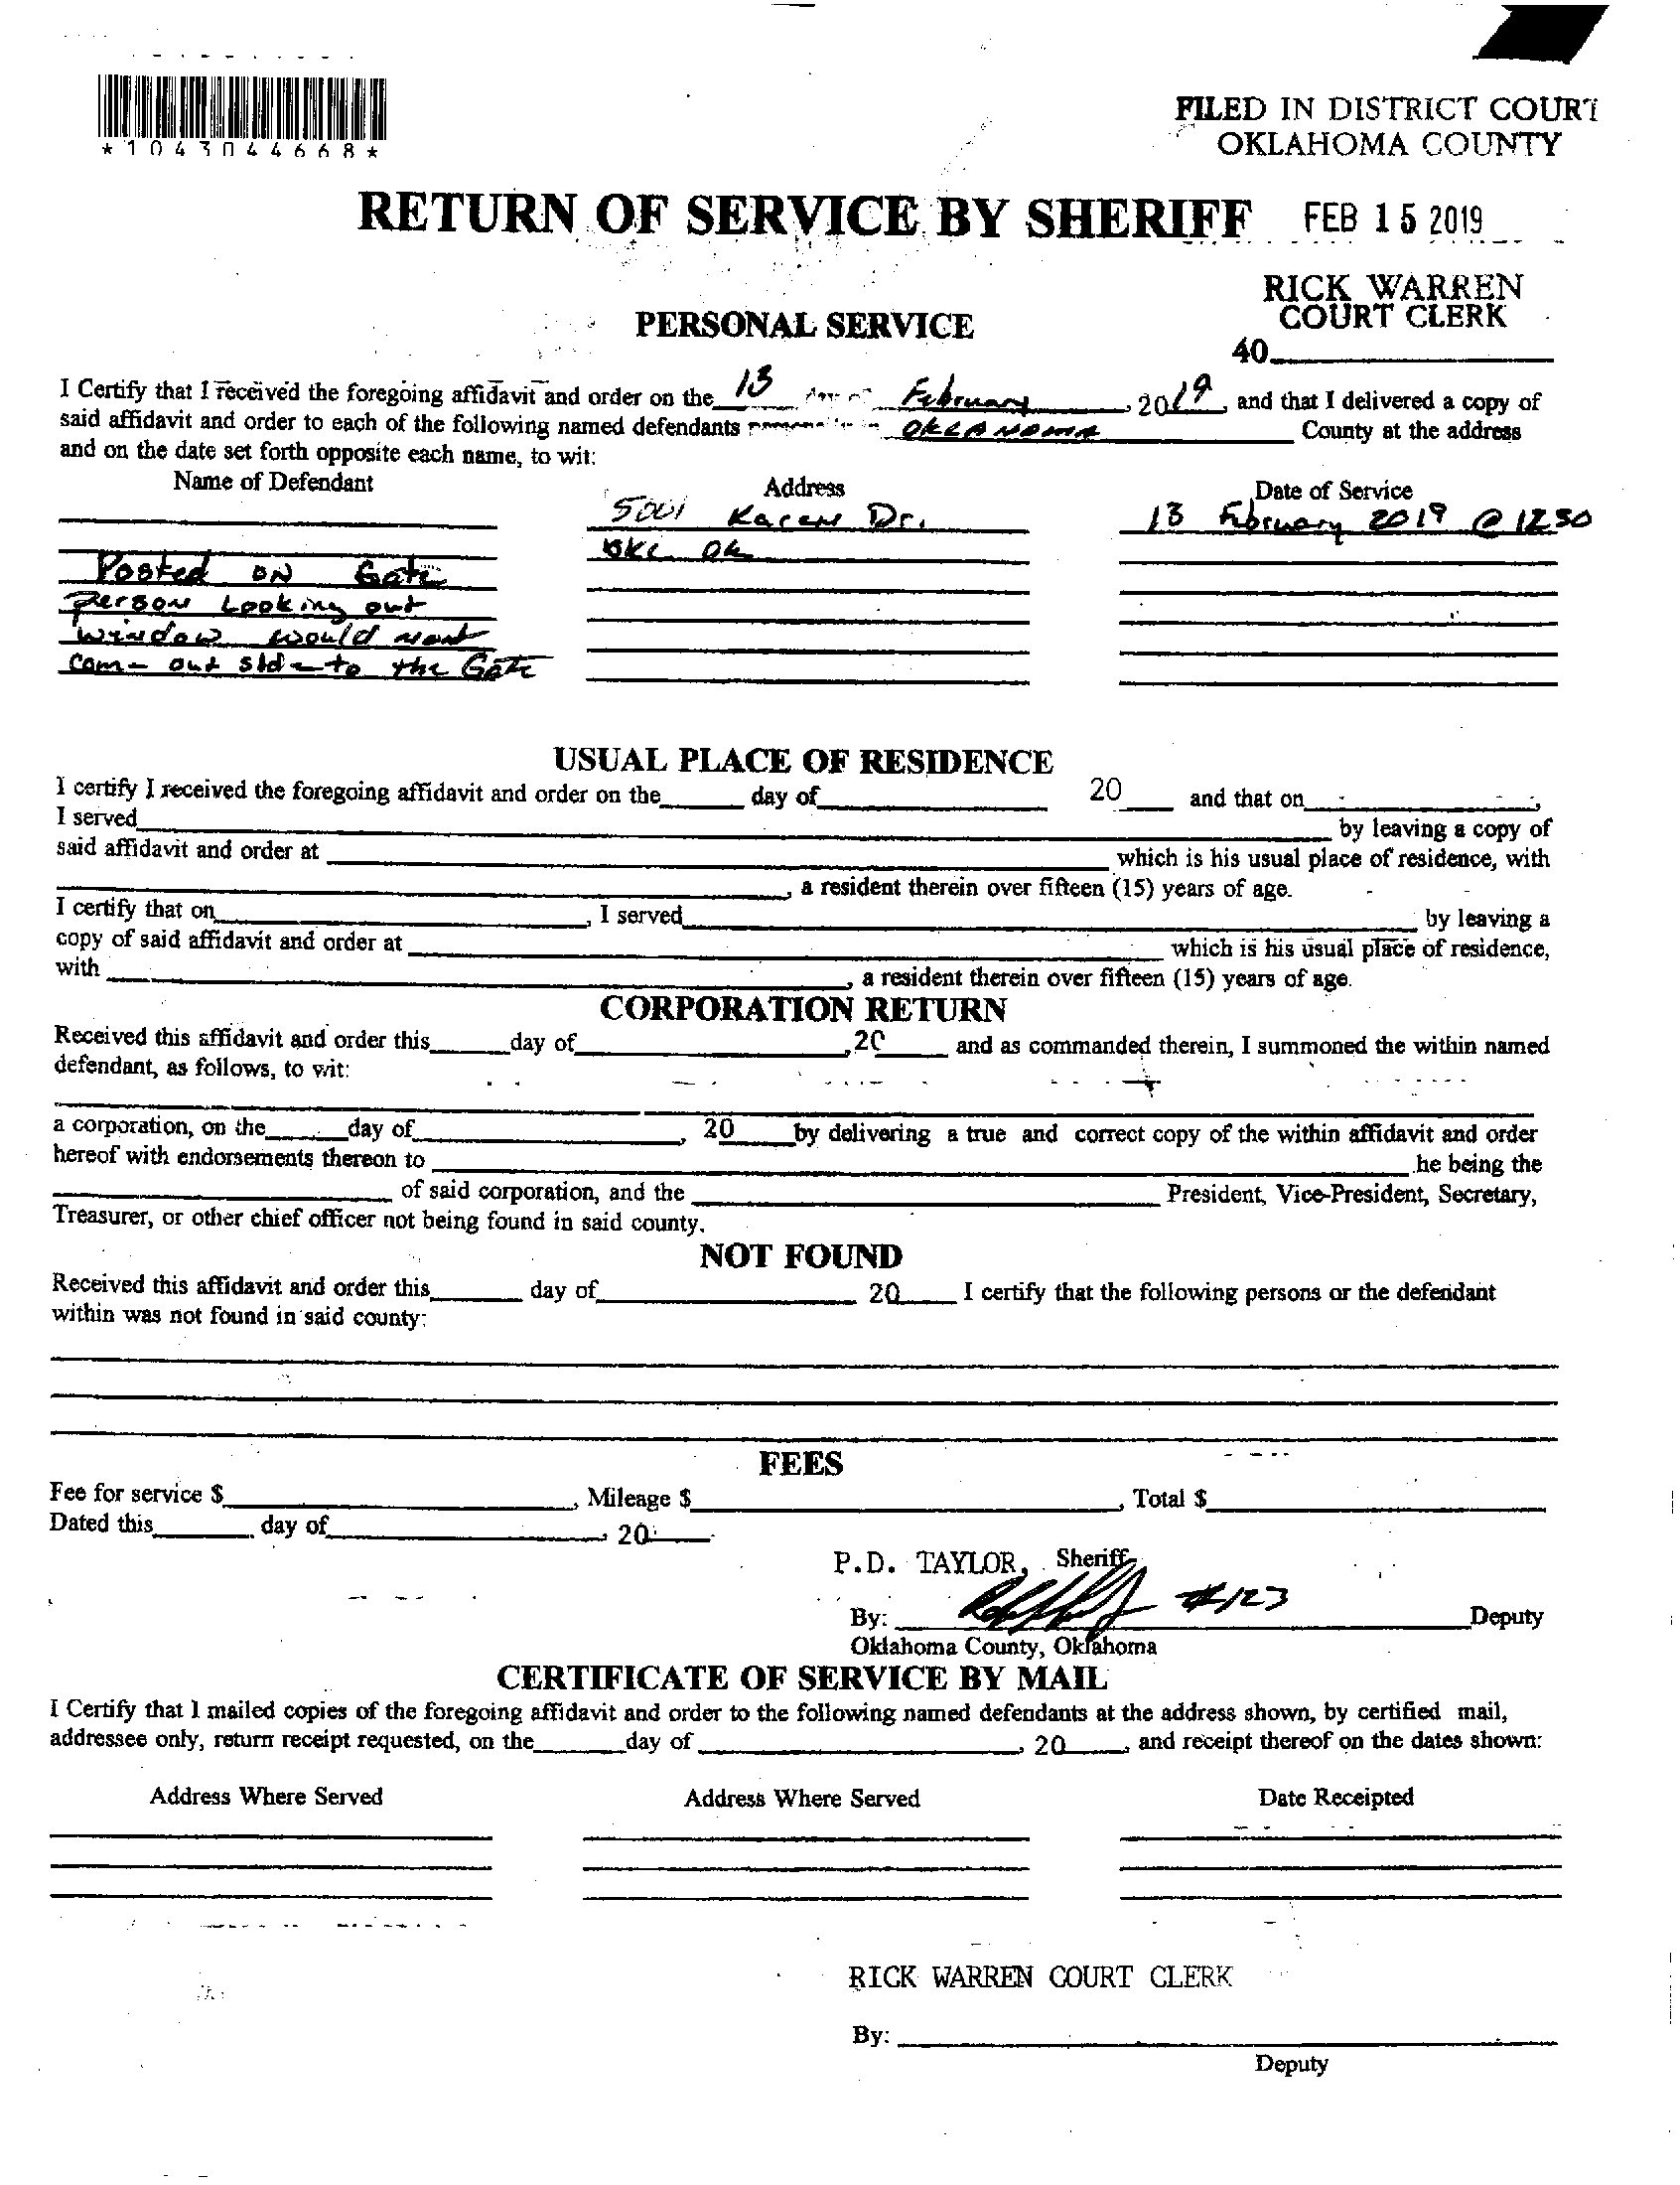 *1043044668*
FILED IN DISTRICT COURT
OKLAHOMA COUNTY
RETURN OF SERVICE BY SHERIFF
FEB 15 2019
RICK WARREN
COURT CLERK
40
PERSONAL SERVICE
I Certify that I received the foregoing affidavit and order on the 13 day of February, 2019, and that I delivered a copy of
said affidavit and order to each of the following named defendants OKLAHOMA County at the address
and on the date set forth opposite each name, to wit:
Name of Defendant Address Date of Service
5001 Karen Dr. 13 February 2019 @ 1250
OKC OK
Posted on Gate
Person Looking out
window would
come out side to the Gate
USUAL PLACE OF RESIDENCE
I certify I received the foregoing affidavit and order on the day of 20 and that on ,
I served by leaving a copy of
said affidavit and order at which is his usual place of residence, with
, a resident therein over fifteen (15) years of age.
I certify that on , I served by leaving a
copy of said affidavit and order at which is his usual place of residence,
with , a resident therein over fifteen (15) years of age.
CORPORATION RETURN
Received this affidavit and order this day of , 20 and as commanded therein, I summoned the within named
defendant, as follows, to wit:
a corporation, on the day of , 20 by delivering a true and correct copy of the within affidavit and order
hereof with endorsements thereon to he being the
of said corporation, and the President, Vice-President, Secretary,
Treasurer, or other chief officer not being found in said county.
NOT FOUND
Received this affidavit and order this day of 20 I certify that the following persons or the defendant
within was not found in said county:
FEES
Fee for service $ , Mileage $ , Total $
Dated this day of , 20
P.D. TAYLOR, Sheriff
By: #123 Deputy
Oklahoma County, Oklahoma
CERTIFICATE OF SERVICE BY MAIL
I Certify that I mailed copies of the foregoing affidavit and order to the following named defendants at the address shown, by certified mail,
addressee only, return receipt requested, on the day of , 20 , and receipt thereof on the dates shown:
Address Where Served Address Where Served Date Receipted
RICK WARREN COURT CLERK
By:
Deputy